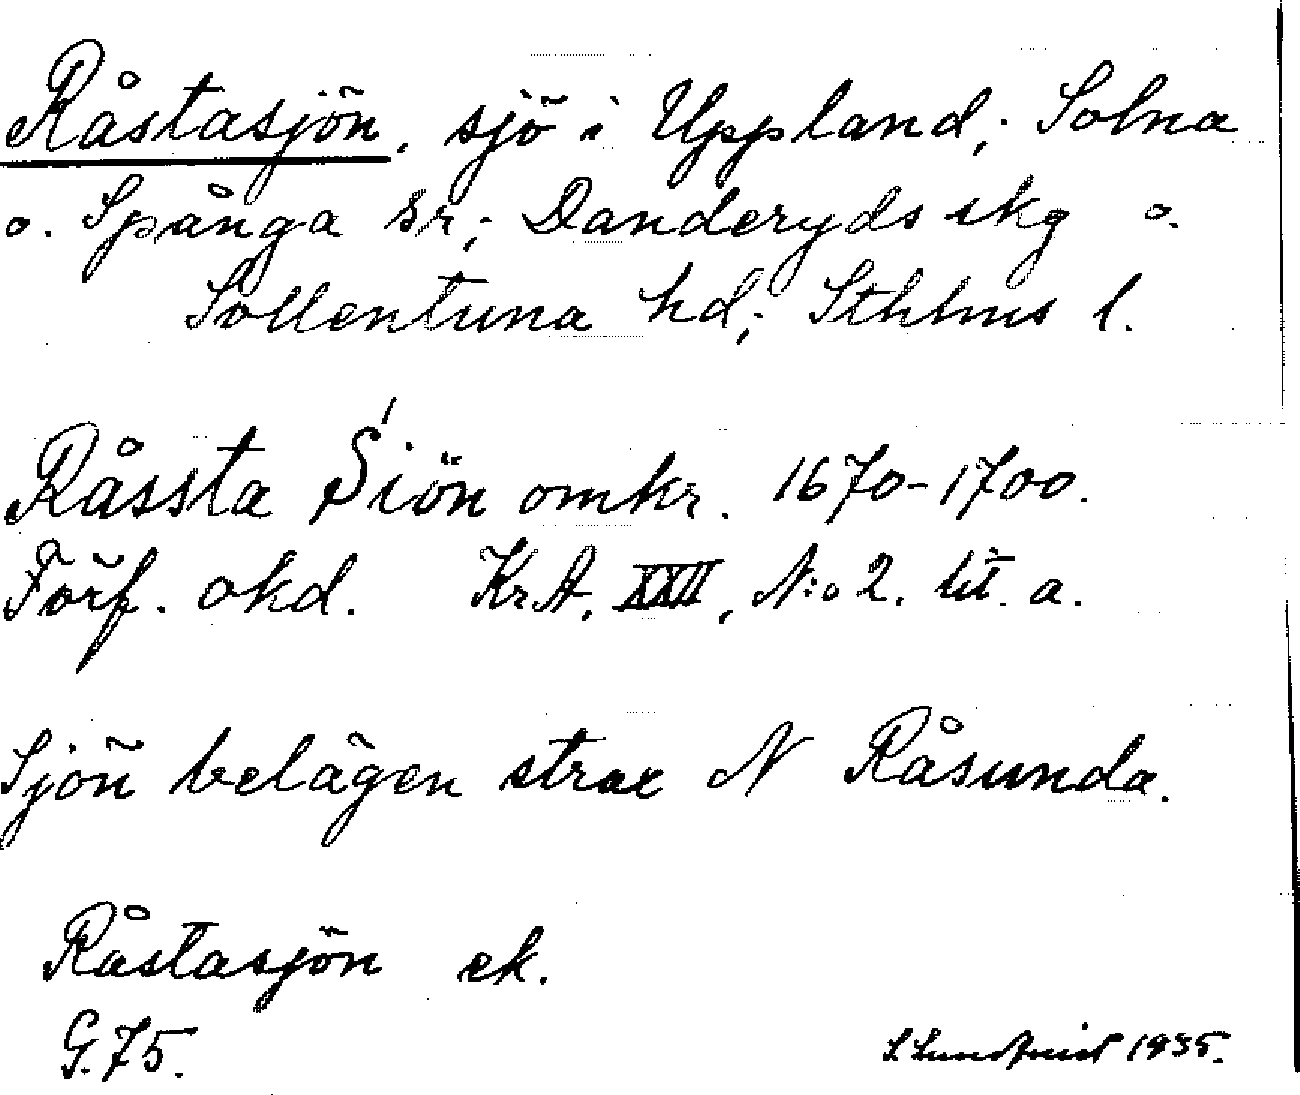 Råstasjön, sjö i Uppland; Solna
o. Spånga sr; Danderyds skg o.
Sollentuna hd; Sthlms l.
Råssta Siön omkr. 1670-1700.
Förf. okd. KrA, XXII, N:o 2. lit. a.
Sjön belägen strax N Råsunda.
Råstasjön ek.
G. 75.
S Lundkvist 1935.